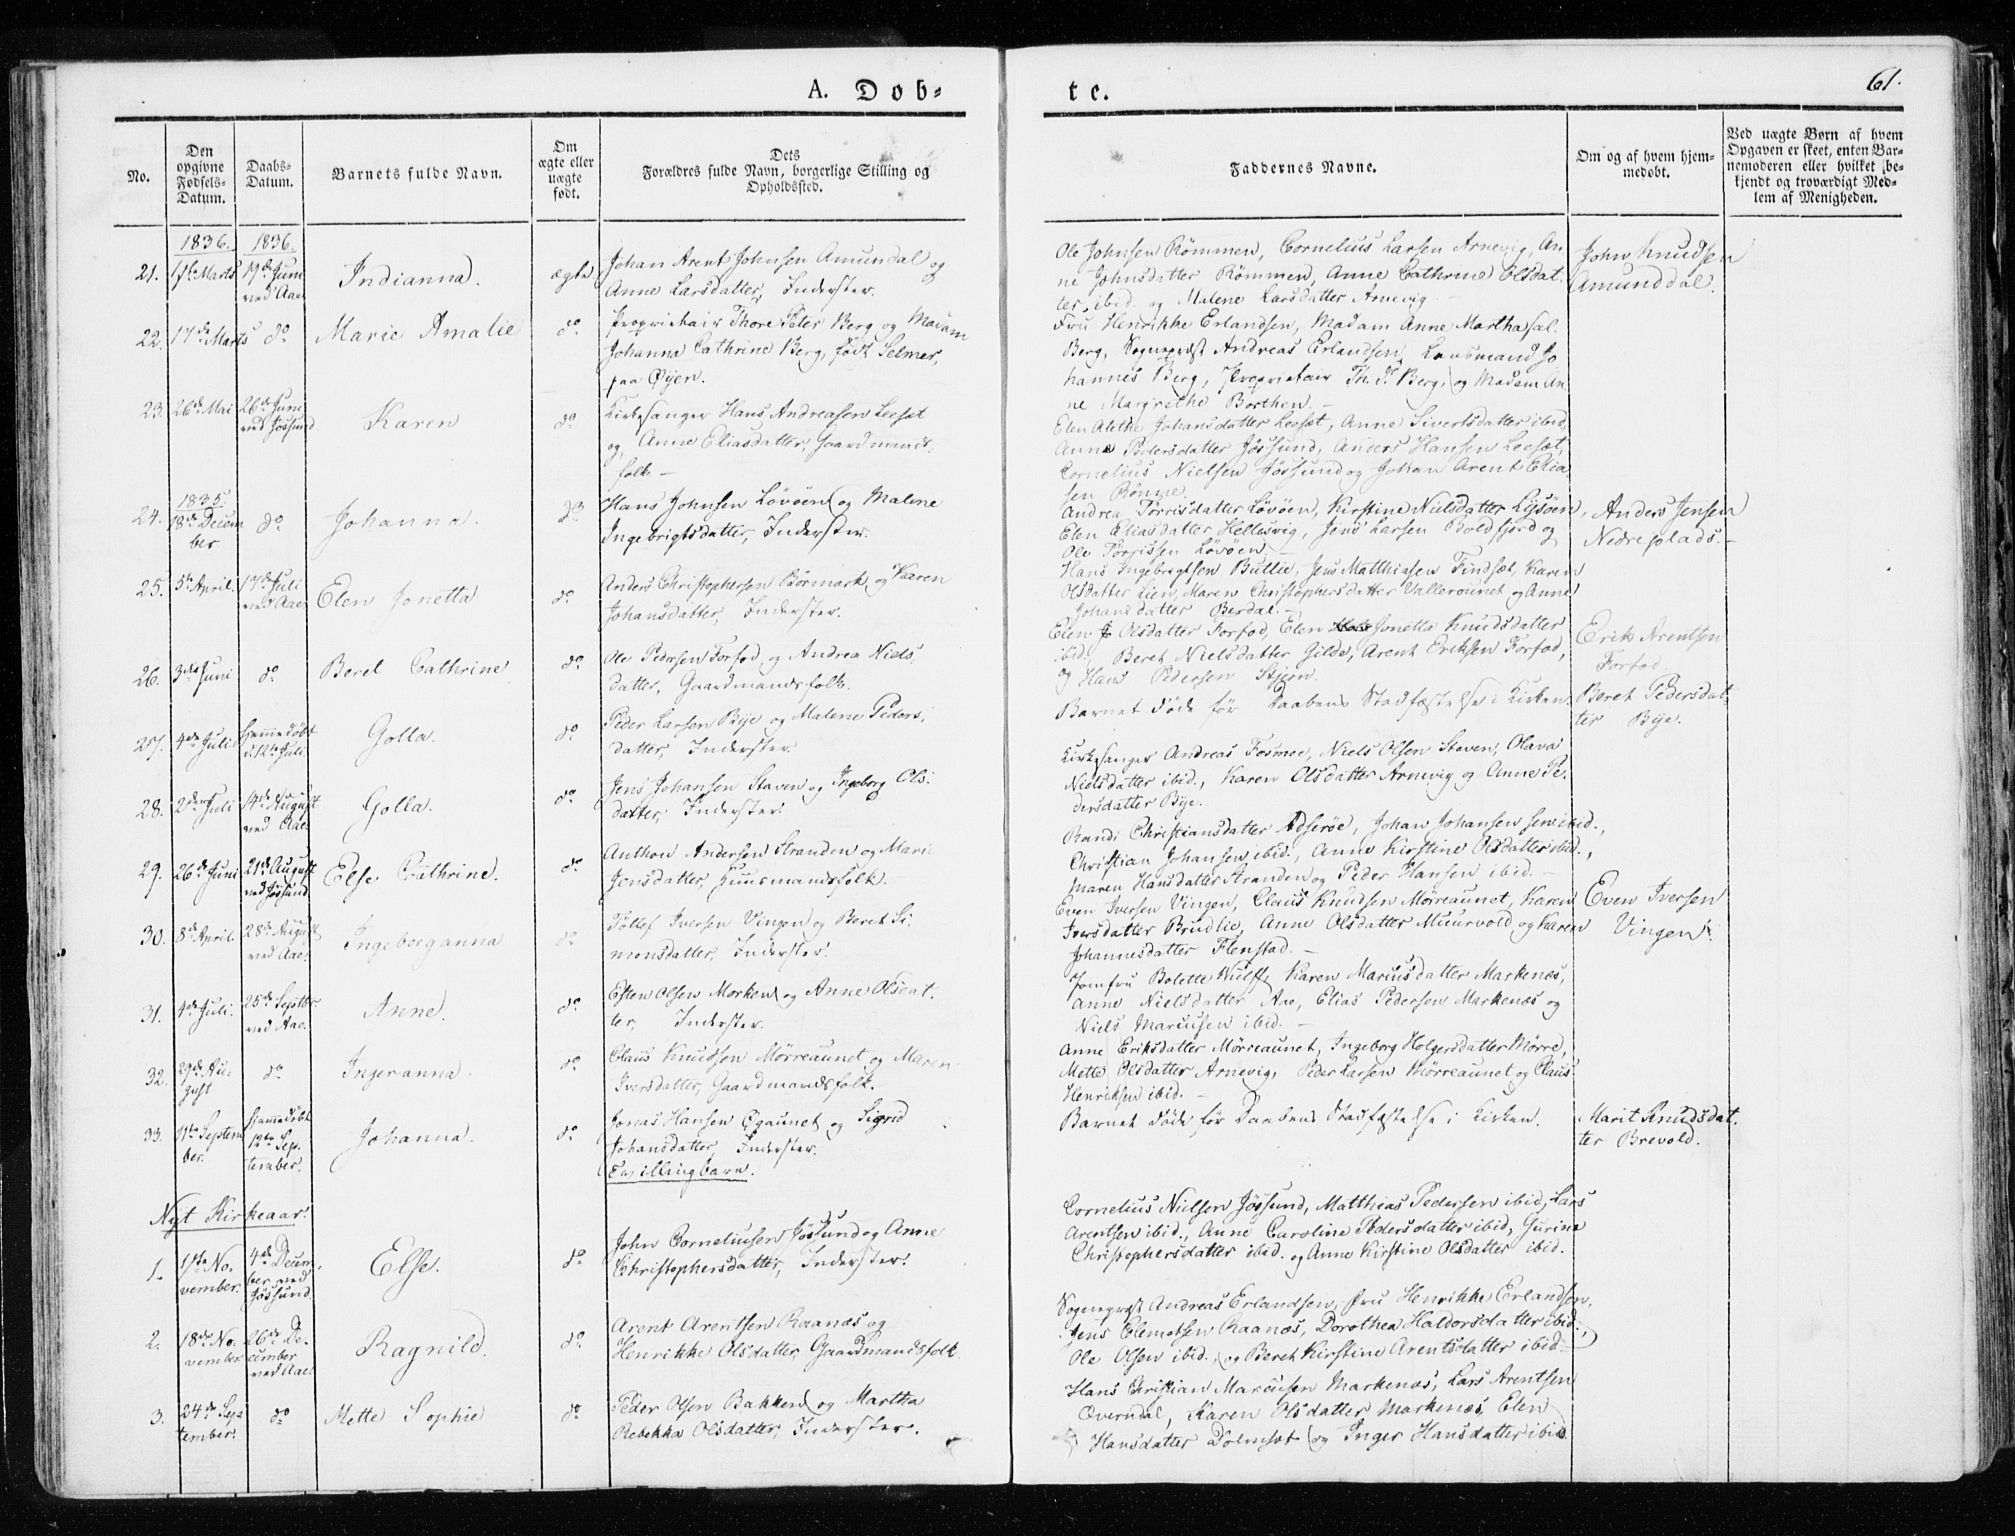 A. Døb-
te.
61.
No.
Den opgivne Fødsels-Datum.
Daabs-Datum.
Barnets fulde Navn.
Om ægte eller uægte født.
Dets
Forældres fulde Navn, borgerlige Stilling og
Opholdssted.
Faddernes Navne.
Om og af hvem hjem-
medøbt.
Ved uægte Børn af hvem
Opgaven er skeet, enten Bar-
nemoderen eller hvilket be-
kjendt og troværdigt Med-
lem af Menigheden.
1836. 1836.
21. Marts 19de Juni ved Aae Indianna. ægte
Johan Arent Johnsen Amundal og
Anne Larsdatter, Inderster.
Ole Johnsen Rømmen, Cornelius Larsen Arnevig, An-
ne Johnsdatter Rømmen, Anne Cathrine Olsdat-
ter, ibid. og Malene Larsdatter Arnevig.
John Knudsen
Amunddal.
22. 17de Marts do Marie Amalie do
Proprietair Thore Peter Berg og Madam
Johanna Cathrine Berg, født Selmer,
paa Øyen.
Fru Henrikke Erlandsen, Madam Anne Martha sal.
Berg, Sognepræst Andreas Erlandsen, Lensmand Jo
hannes Berg, Proprietair Th. P. Berg, og Madam An-
ne Margrethe Borthen.
23. 26de Mai 26de Juni ved Jøssund Karen do
Kirkesanger Hans Andreasen Leeset
og Anne Eliasdatter, Gaardmands-
folk.
Elen Alethe Johansdatter Leeset, Anne Sivertsdatter ibid,
Anne Pedersdatter Jøssund, Anders Hansen Leeset,
Cornelius Nielsen Jøssund og Johan Arent Elia-
sen
24. 1835. 18de Decem ber. do Johanna. do
Hans Johnsen Løvøen og Malene
Ingebrigtsdatter, Inderster.
Andrea Torrisdatter Løvøen, Kirstine Nielsdatter Lysøen,
Elen Eliasdatter Hellesvig, Jens Larsen Boldfjord og
Ole Torrissen Løvøen
Anders Jensen
Nedreplads.
25. 5te April. 17de Juli ved Aae Elen Jonetta do
Anders Christophersen Børmark og Karen
Johansdatter, Inderster.
Hans Ingebrigtsen Butlie, Jens Matthiasen Findset, Karen
Olsdatter Lien, Maren Christophersdatter Vallerounet og Anne
Johansdatter Berdal.
26. 3die Juni do Beret Cathrine do
Ole Pedersen Forfod og Andrea Niels
datter, Gaardmandsfolk.
Elen Olsdatter Forfod, Elen Jonetta Knudsdatter
ibid, Beret Nielsdatter Gilde, Arent Eriksen Forfod,
og Hans Pedersen Stjern.
Erik Arentsen
Forfod.
27. 4de Juli hjemmedøbt d. 12te Juli Golla. do
Peder Larsen Bye og Malene Peders-
datter, Inderster.
Barnet døde før Daabens Stadfæstelse i Kirken.
Beret Pedersdat-
ter Bye.
28. 2den Juli 14de August ved Aae. Golla. do
Jens Johansen Staven og Ingeborg Ols-
datter, Inderster.
Kirkesanger Andreas Fosmoe, Niels Olsen Staven, Olava
Nielsdatter ibid., Karen Olsdatter Arnevig og Anne Pe-
dersdatter Bye.
29. 26de Juni 21de August ved Jøssund Else Cathrine. do
Anthon Andersen Stranden og Mari
Jensdatter, Huusmandsfolk.
Randi Christiansdatter Adserøe, Johan Johansen ibid.,
Christian Johansen ibid., Anne Kirstine Olsdatter ibid.,
Maren Hansdatter Stranden og Peder Hansen ibid.
30. 8de April. 28de August ved Aae. Ingeberganna do
Tollef Iversen Vingen og Beret Si-
monsdatter, Inderster.
Even Iversen Vingen, Claus Knudsen Mørreaunet, Karen
Iversdatter Brudlie, Anne Olsdatter Muurvold og Karen
Johannesdatter Flenstad.
Even Iversen
Vingen.
31. 4de Juli. 25de Septbr ved Aae. Anne. do
Esten Olsen Morken og Anne Olsdat-
ter, Inderster.
Jomfru Bolette Wulff, Karen Mariusdatter Markenæs,
Anne Nielsdatter Aae, Elias Pedersen Markenæs og
Niels Marcusen ibid.
32. 29de Au- gust do Ingeranna. do
Claus Knudsen Mørreaunet og Maren
Iversdatter, Gaardmandsfolk.
Anne Eriksdatter Mørreaunet, Ingeborg Holgersdatter Mørre,
Mette Olsdatter Arnevig, Peder Larsen Mørreaunet og Claus
Henriksen ibid.
33. 11te Septem ber. hjemmedøbt 12te Sep- tember. Johanna. do
Jonas Hansen Ogaunet og Sigrid
Johansdatter, Inderster.
Tvillingbarn.
Barnet døde før Daabens Stadfæstelse i Kirken.
Marit Knudsdat-
ter Brevold.
Nyt Kirkeaar.
1. No- vember. 4de Decem- ber ved Jøssund. Else. do
John Corneliusen Jøssund og Anne
Christophersdatter, Inderster.
Cornelius Nielsen Jøssund, Matthias Pedersen ibid, Lars
Arentsen ibid., Anne Caroline Pedersdatter ibid, Gurine
Christophersdatter ibid. og Anne Kirstine Olsdatter ibid.
2. 18de No- vember 26de De- cember ved Aae. Ragnild. do
Arent Arentsen Raanæs og
Henrikke Olsdatter Gaardmandsfolk
Sognepræst Andreas Erlandsen, Fru Henrikke Erlandsen,
Jens Clemetsen Raanæs, Dorothea Haldorsdatter ibid.,
Ole Olsen ibid., og Beret Kirstine Arentsdatter ibid.
3. 24de Sep tember. do Mette Sophie do
Peder Olsen Bakken og Martha
Rebekka Olsdatter, Inderster.
Hans Christian Marcusen Markenæs, Lars Arentsen
Overndal, Karen Olsdatter Markenæs, Elen
Hansdatter Dolmset og Inger Hansdatter ibid.